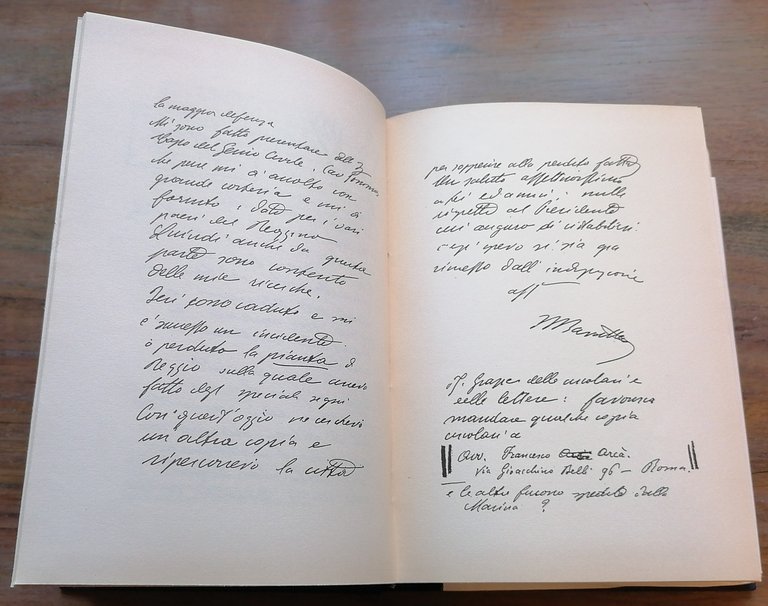 la maggior deferenza
Mi sono fatto presentare dall' Ing.
Capo del Genio Civile, Cav.
che pure mi à accolto con
grande cortesia e mi à
fornito i dati per i vari
paesi del Reggino
Quindi anche da questa
parte sono contento
delle mie ricerche.
Ieri sono caduto e mi
è successo un incidente
ò perduto la pianta di
Reggio sulla quale avevo
fatto degli speciali segni
Così quest'oggi ne cercherò
un'altra copia e
ripercorrerò la città
per sapperire alla perdita fatta
Un saluto affettuosissimo
a lei ed amici i miei
rispetti al Presidente
cui auguro di ristabilirsi
spero si sia già
rimesso dall'indisposizione
aff
Grazie delle circolari e
delle lettere: favorisca
mandare qualche copia
circolari a
Avv. Francesco Arcà.
via Gioacchino Belli 96 – Roma.
e le altre furono spedite dalla
Marina?